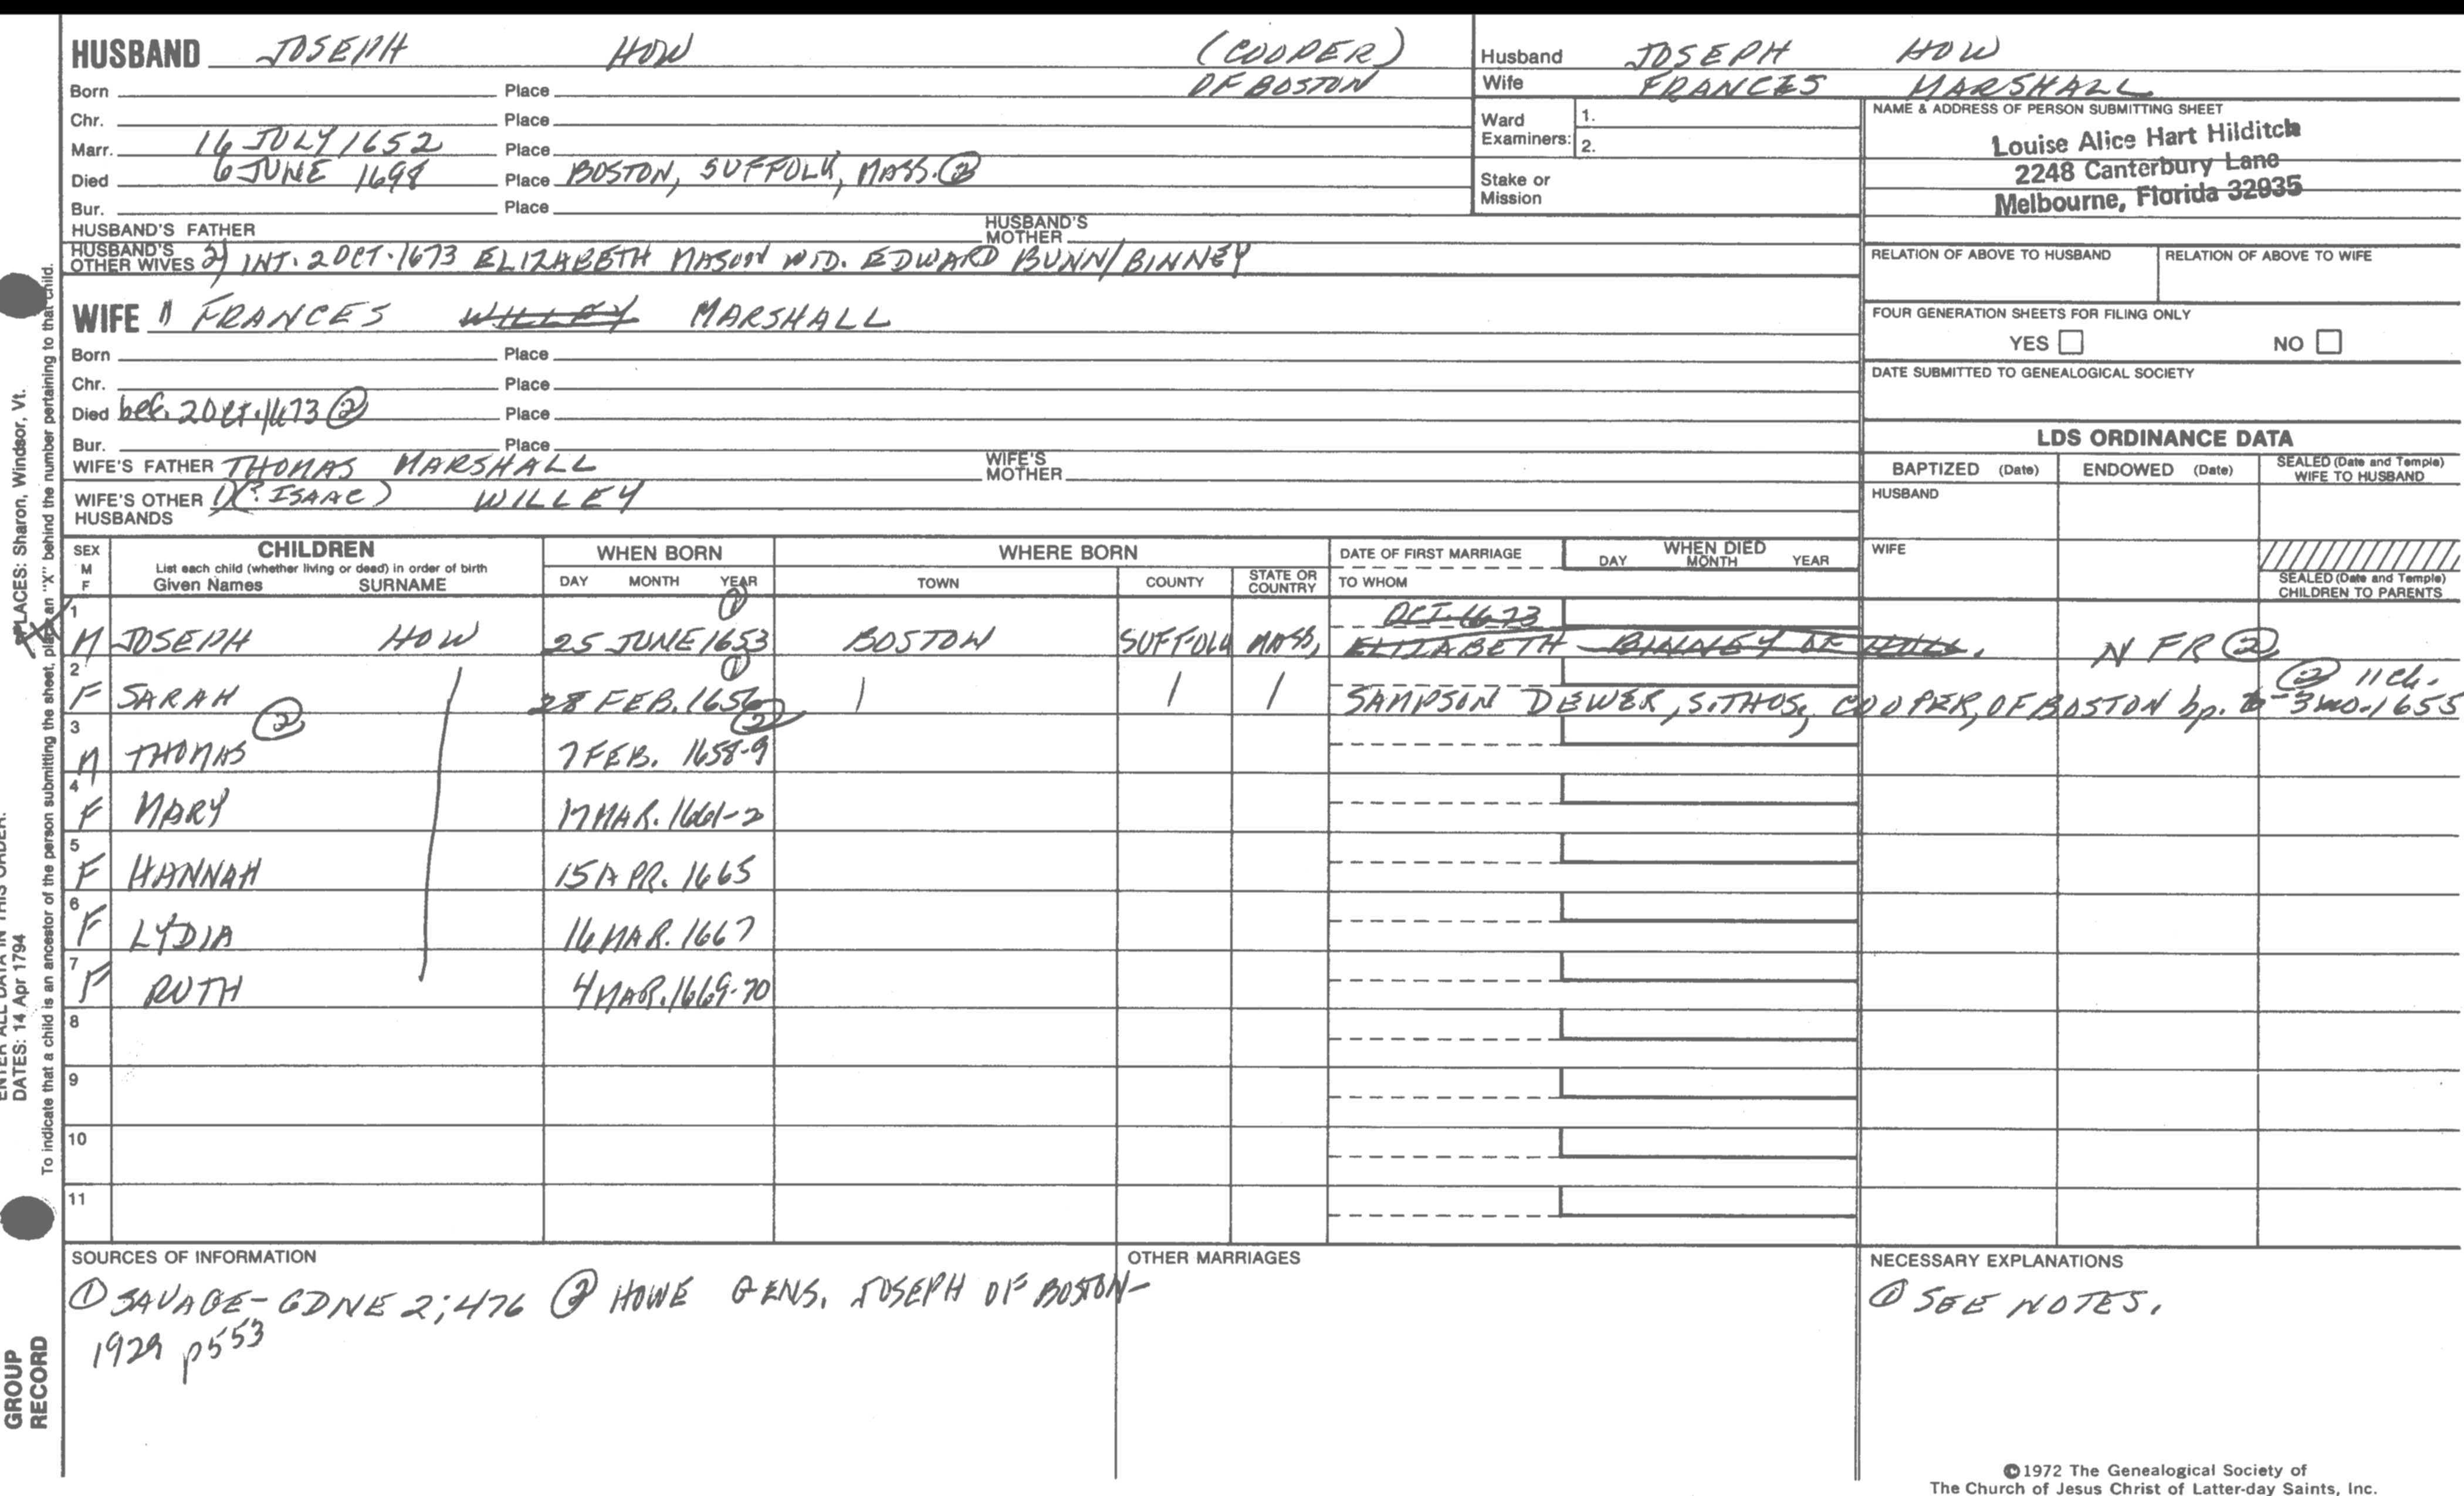 HUSBAND JOSEPH HOW (COOPER)
OF BOSTON
Born Place
Chr. Place
Marr. 16 JULY 1652 Place
Died 6 JUNE 1698 Place BOSTON, SUFFOLK, MASS. ②
Bur. Place
HUSBAND'S FATHER HUSBAND'S MOTHER
HUSBAND'S OTHER WIVES 2) INT. 2 OCT. 1673 ELIZABETH MASON WID. EDWARD BUNN/BINNEY
WIFE FRANCES WILLEY MARSHALL
Born Place
Chr. Place
Died bef. 2 Oct. 1673 ② Place
Bur. Place
WIFE'S FATHER THOMAS MARSHALL WIFE'S MOTHER
WIFE'S OTHER HUSBANDS 1) (? ISAAC) WILLEY
Husband JOSEPH HOW
Wife FRANCES MARSHALL
Ward Examiners: 1.
2.
Stake or Mission
NAME & ADDRESS OF PERSON SUBMITTING SHEET
Louise Alice Hart Hilditch
2248 Canterbury Lane
Melbourne, Florida 32935
RELATION OF ABOVE TO HUSBAND RELATION OF ABOVE TO WIFE
FOUR GENERATION SHEETS FOR FILING ONLY
YES NO
DATE SUBMITTED TO GENEALOGICAL SOCIETY
LDS ORDINANCE DATA
BAPTIZED (Date) ENDOWED (Date) SEALED (Date and Temple) WIFE TO HUSBAND
HUSBAND
WIFE
SEALED (Date and Temple) CHILDREN TO PARENTS
SEX M F CHILDREN WHEN BORN WHERE BORN DATE OF FIRST MARRIAGE WHEN DIED
List each child (whether living or dead) in order of birth
Given Names SURNAME DAY MONTH YEAR TOWN COUNTY STATE OR COUNTRY TO WHOM DAY MONTH YEAR
①
1 OCT. 1673
M JOSEPH HOW 25 JUNE 1653 BOSTON SUFFOLK MASS, ELIZABETH BINNEY OF HULL. N FR ②
2 ① ② 11 ch.
F SARAH 28 FEB. 1656 SAMPSON DEWER, S. THOS, COOPER, OF BOSTON bp. 3 mo. 1655
3 ② ②
M THOMAS 7 FEB. 1658-9
4
F MARY 17 MAR. 1661-2
5
F HANNAH 15 APR. 1665
6
F LYDIA 16 MAR. 1667
7
F RUTH 4 MAR. 1669-70
8
9
10
11
SOURCES OF INFORMATION
① SAVAGE-GDNE 2; 476 ② HOWE GENS. JOSEPH OF BOSTON-
1929 p553
OTHER MARRIAGES
NECESSARY EXPLANATIONS
① SEE NOTES.
©1972 The Genealogical Society of
The Church of Jesus Christ of Latter-day Saints, Inc.
PLACES: Sharon, Windsor, Vt.
To indicate that a child is an ancestor of the person submitting the sheet, place an "X" behind the number pertaining to that child.
ENTER ALL DATA IN THIS ORDER:
DATES: 14 Apr 1794
GROUP
RECORD